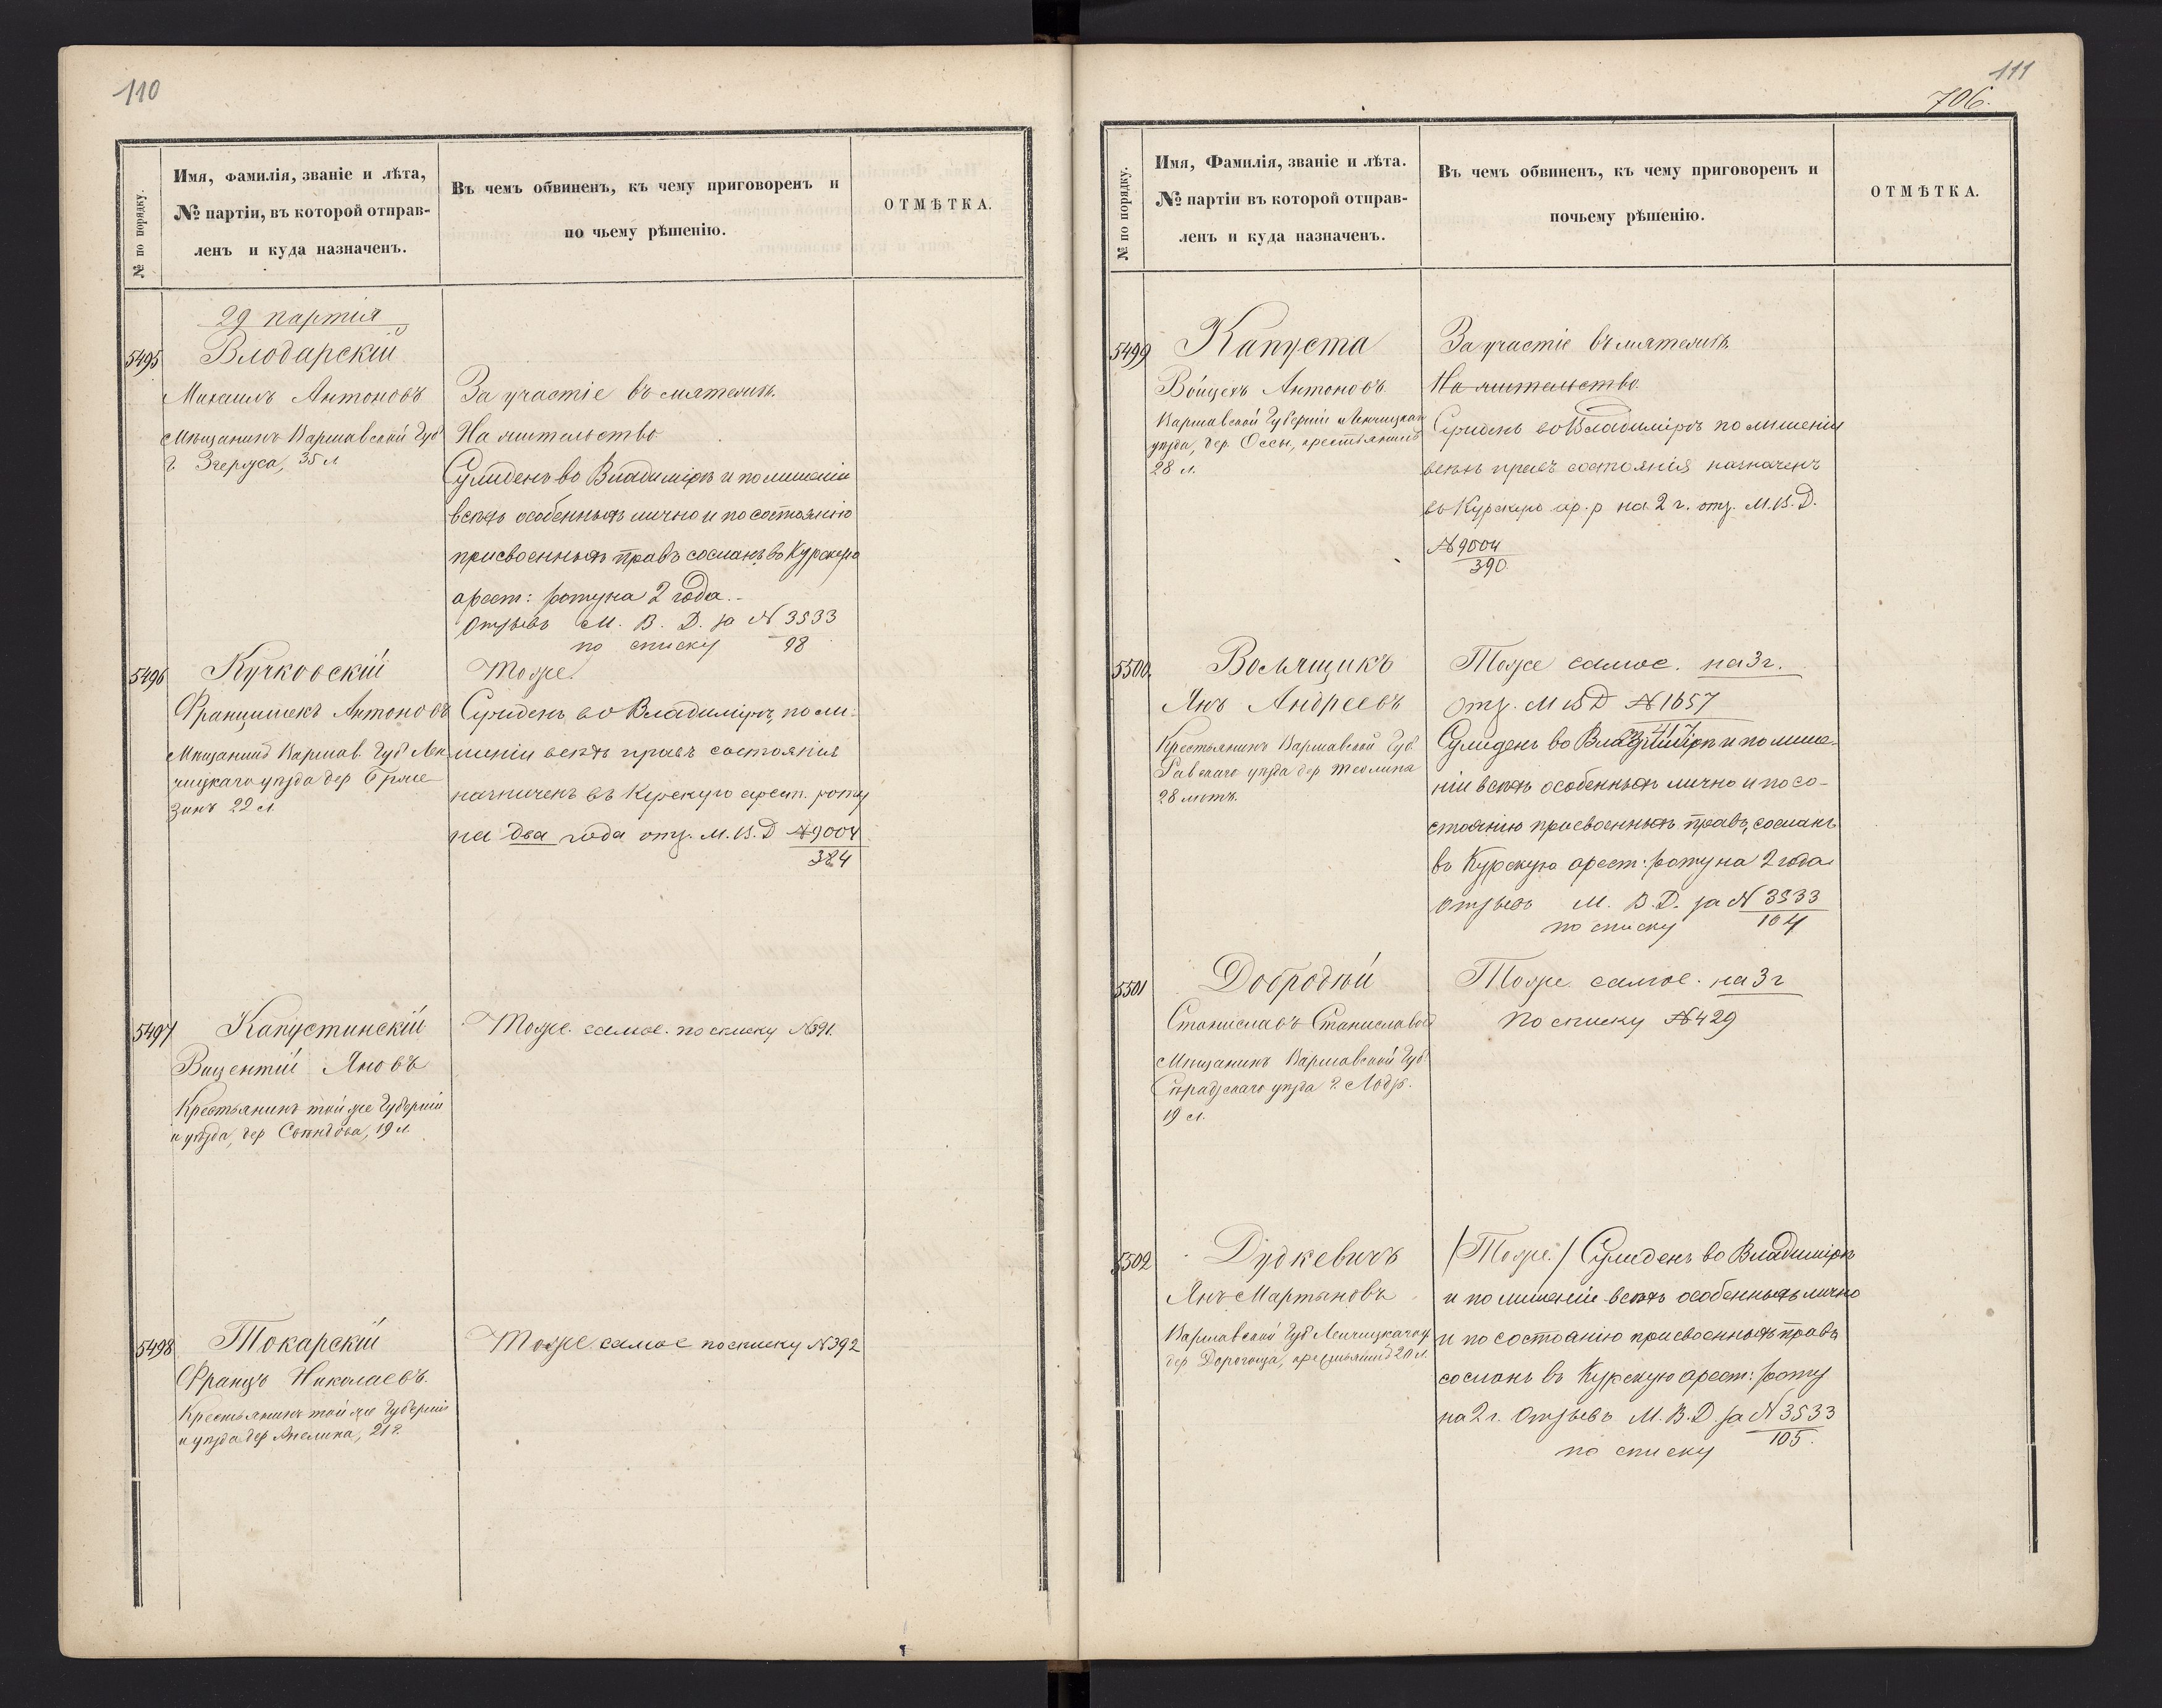 110
№ по порядку.
Имя, фамилія, званіе и лѣта,
№ партіи, въ которой отправ-
ленъ и куда назначенъ.
Въ чемъ обвиненъ, къ чему приговоренъ и
по чьему рѣшенію.
ОТМѢТКА.
29 партія
5495
Влодарскій
Михаилъ Антоновъ
Мѣщанинъ Варшавской Губ
г. Згержа, 35 л
За участіе въ мятежѣ.
На жительство
Сужденъ во Владимірѣ и по лишеніи
всѣхъ особенныхъ лично и по состоянію
присвоенныхъ правъ сосланъ въ Курскую
арест: роту на 2 года.
Отзывъ М. В. Д. за № 3533
по списку 98
5496
Кучковскій
Францишекъ Антоновъ
Мѣщанинъ Варшав. Губ Лен
чицкаго уѣзда дер
22 л
Тоже.
Сужденъ во Владимірѣ, по ли-
шеніи всѣхъ правъ состоянія
назначенъ въ Курскую арест. роту
на два года отз. М. В. Д №9004
384
5497
Капустинскій
Вицентій Яновъ
Крестьянинъ той же Губерніи
и уѣзда, дер 19 л.
Тоже самое. по списку №391.
5498
Токарскій
Францъ Николаевъ.
Крестьянинъ той же Губерніи
и уѣзда дер Анелина, 21 г.
Тоже самое по списку №392
111
706.
№ по порядку.
Имя, Фамилія, званіе и лѣта.
№ партіи въ которой отправ-
ленъ и куда назначенъ.
Въ чемъ обвиненъ, къ чему приговоренъ и
почьему рѣшенію.
ОТМѢТКА.
5499
Капуста
Войцехъ Антоновъ
Варшавской Губерніи Ленчицкаго
уѣзда, дер. Оссы, крестьянинъ
28 л.
За участіе въ мятежѣ.
На жительство.
Сужденъ во Владимірѣ по лишеніи
всѣхъ правъ состоянія назначенъ
въ Курскую ар. р на 2 г. отз. М. В. Д.
№9004
390.
5500.
Вольящикъ
Янъ Андреевъ
Крестьянинъ Варшавской Губ.
Равскаго уѣзда дер Теолина
28 лѣтъ.
Тоже самое. на 3 г.
отз. М В Д №1657
Сужденъ во Владимірѣ и по лише-
ніи всѣхъ особенныхъ лично и по со-
стоянію присвоенныхъ правъ, сосланъ
въ Курскую арест: роту на 2 года
Отзывъ М. В. Д. за № 3533
по списку 104
5501
Добродѣй
Станиславъ Станиславовъ
Мѣщанинъ Варшавской Губ.
Сѣрадзскаго уѣзда г. Лодзь.
19 л.
Тоже самое. на 3 г
По списку №429
5502
Дудкевичъ
Янъ Мартыновъ
Варшавской Губ Ленчицкаго у.
дер Дорогоща, крестьянинъ 20 л.
/Тоже./ Сужденъ во Владимірѣ
и по лишеніи всѣхъ особенныхъ лично
и по состоянію присвоенныхъ правъ
сосланъ въ Курскую арест: роту
на 2 г. Отзывъ М. В. Д. за № 3533
по списку 105.